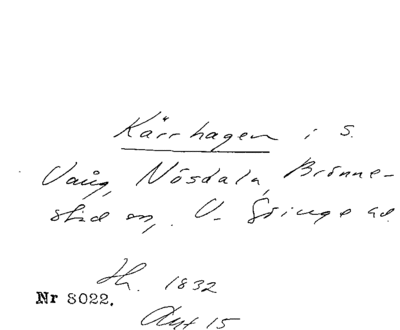 Kärrhagen i S.
Vång, Nösdala, Brönne-
stad sn, V. Göinge hd.
Hh. 1832
Nr 8022.
Akt 15